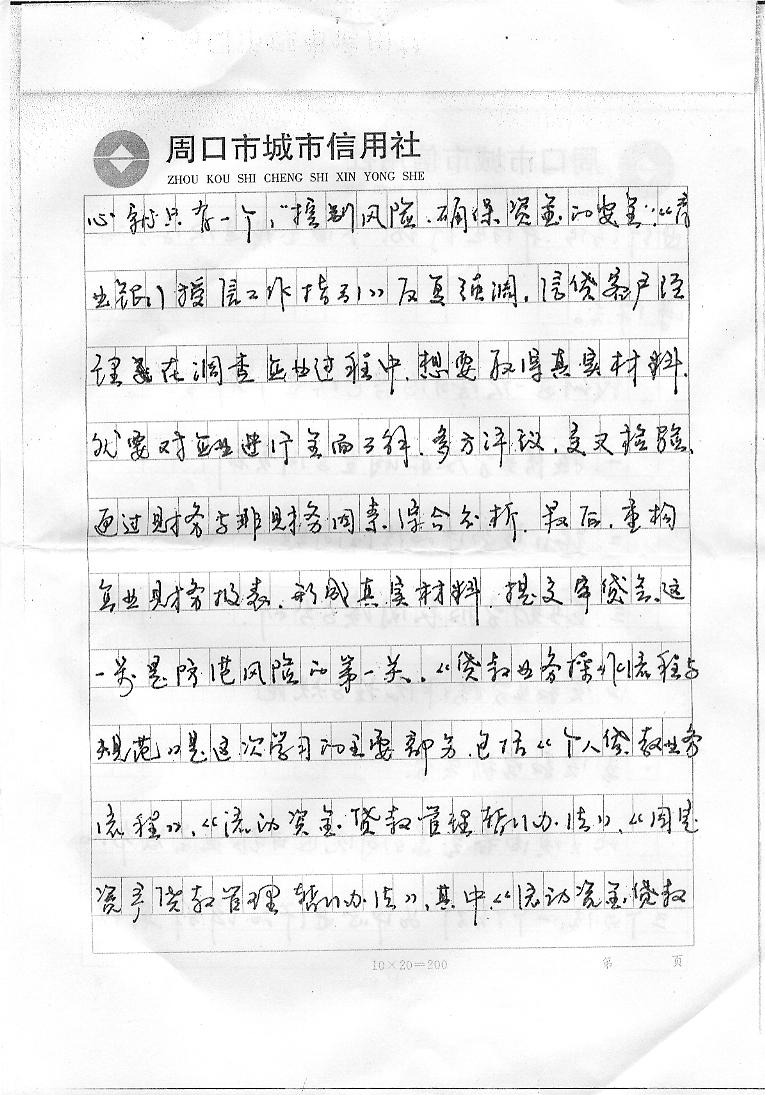 周口市城市信用社
ZHOU KOU SHI CHENG SHI XIN YONG SHE
心就只有一个，“控制风险、确保资金的安全”。《商
业银行授信工作指引》反复强调，信贷客户经
理在调查企业过程中，想要取得真实材料，
就要对企业进行全面了解、多方评议，交叉检验、
通过财务与非财务因素，综合分析，最后，重构
企业财务报表，形成真实材料，提交审贷会。这
一关是防范风险的第一关。《贷款业务操作流程与
规范》是这次学习的主要部分，包括《个人贷款业务
流程》、《流动资金贷款管理暂行办法》、《固定
资产贷款管理暂行办法》，其中《流动资金贷款
10×20=200
第 页